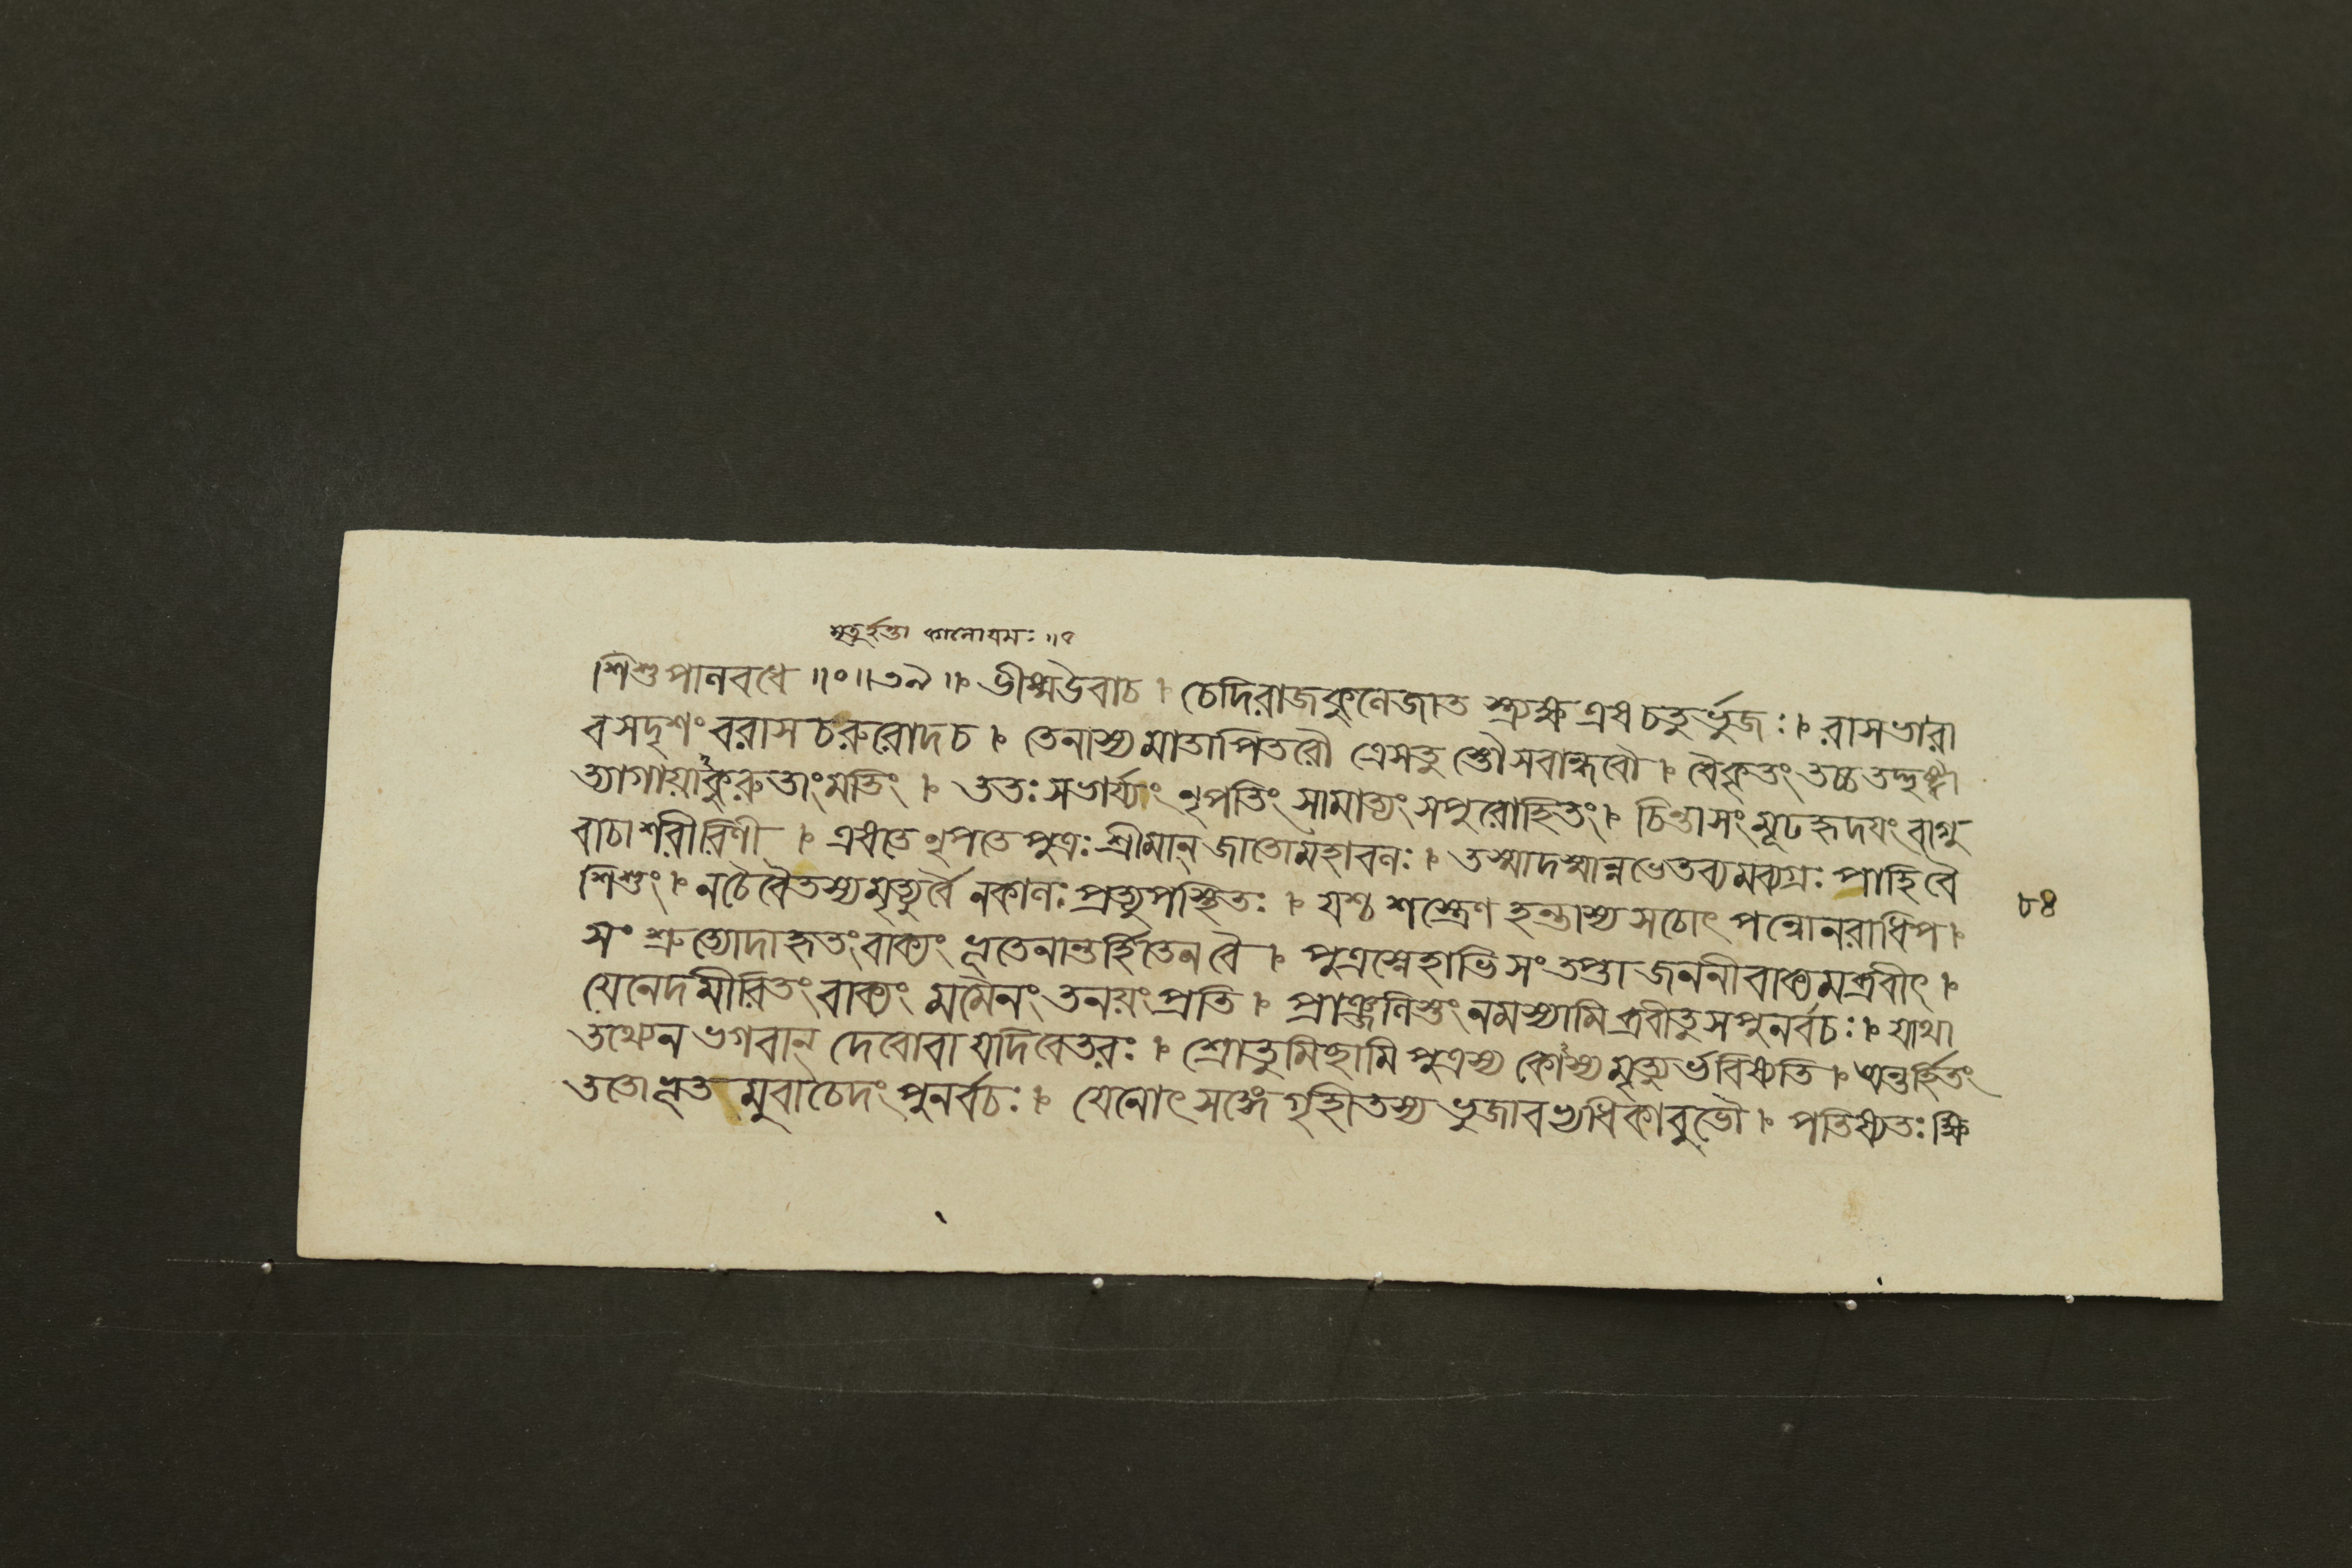 মৃত্যুর্হন্তা কালোযমঃ ॥২
শিশুপালবধে ॥०॥৩৯ ॥৷ ভীষ্মউবাচ । চেদিরাজকুলেজাত স্ত্র্যক্ষ এষ চতুর্ভুজঃ । রাসভারা
বসদৃশং ররাস চরুরোদচ । তেনাস্য মাতাপিতরৌ ত্রেসতু স্তৌসবান্ধবৌ । বৈকৃতং তচ্চ তদ্দৃষ্ট্বা
ত্যাগায়াকুরুতাংমতিং । ততঃ সভার্য্যং নৃপতিং সামাত্যং সপুরোহিতং । চিন্তাসংমূঢহৃদয়ং বাগু
বাচাশরীরিণী । এষতে নৃপতে পুত্রঃ শ্রীমান্ জাতোমহাবলঃ । তস্মাদস্মান্নভেতব্যমব্যগ্রঃ পাহিবৈ
শিশুং । নচৈবৈতস্য মৃত্যুর্বৈ নকালঃ প্রত্যুপস্থিতঃ । যশ্চ শস্ত্রেণ হন্তাস্য সচোৎ পন্নোনরাধিপ ।
সং শ্রুত্যোদাহৃতংবাক্যং ভূতেনান্তর্হিতেন বৈ । পুত্রস্নেহাভি সংতপ্তা জননীবাক্যমব্রবীৎ ।
যেনেদমীরিতংবাক্যং মমৈনং তনয়ংপ্রতি । প্রাঞ্জলিস্তংনমস্যামি ব্রবীতুসপুনর্বচঃ । যাথা
তথ্যেন ভগবান্ দেবোবা যদিবেতরঃ । শ্রোতুমিছামি পুত্রস্য কোস্য মৃত্যুর্ভবিষ্যতি । অন্তর্হিতং
ততোভূত মুবাচেদং পুনর্বচঃ । যেনোৎসঙ্গে গৃহীতস্য ভুজাবভ্যধিকাবুভৌ । পতিষ্যতঃ ক্ষি
৮৪